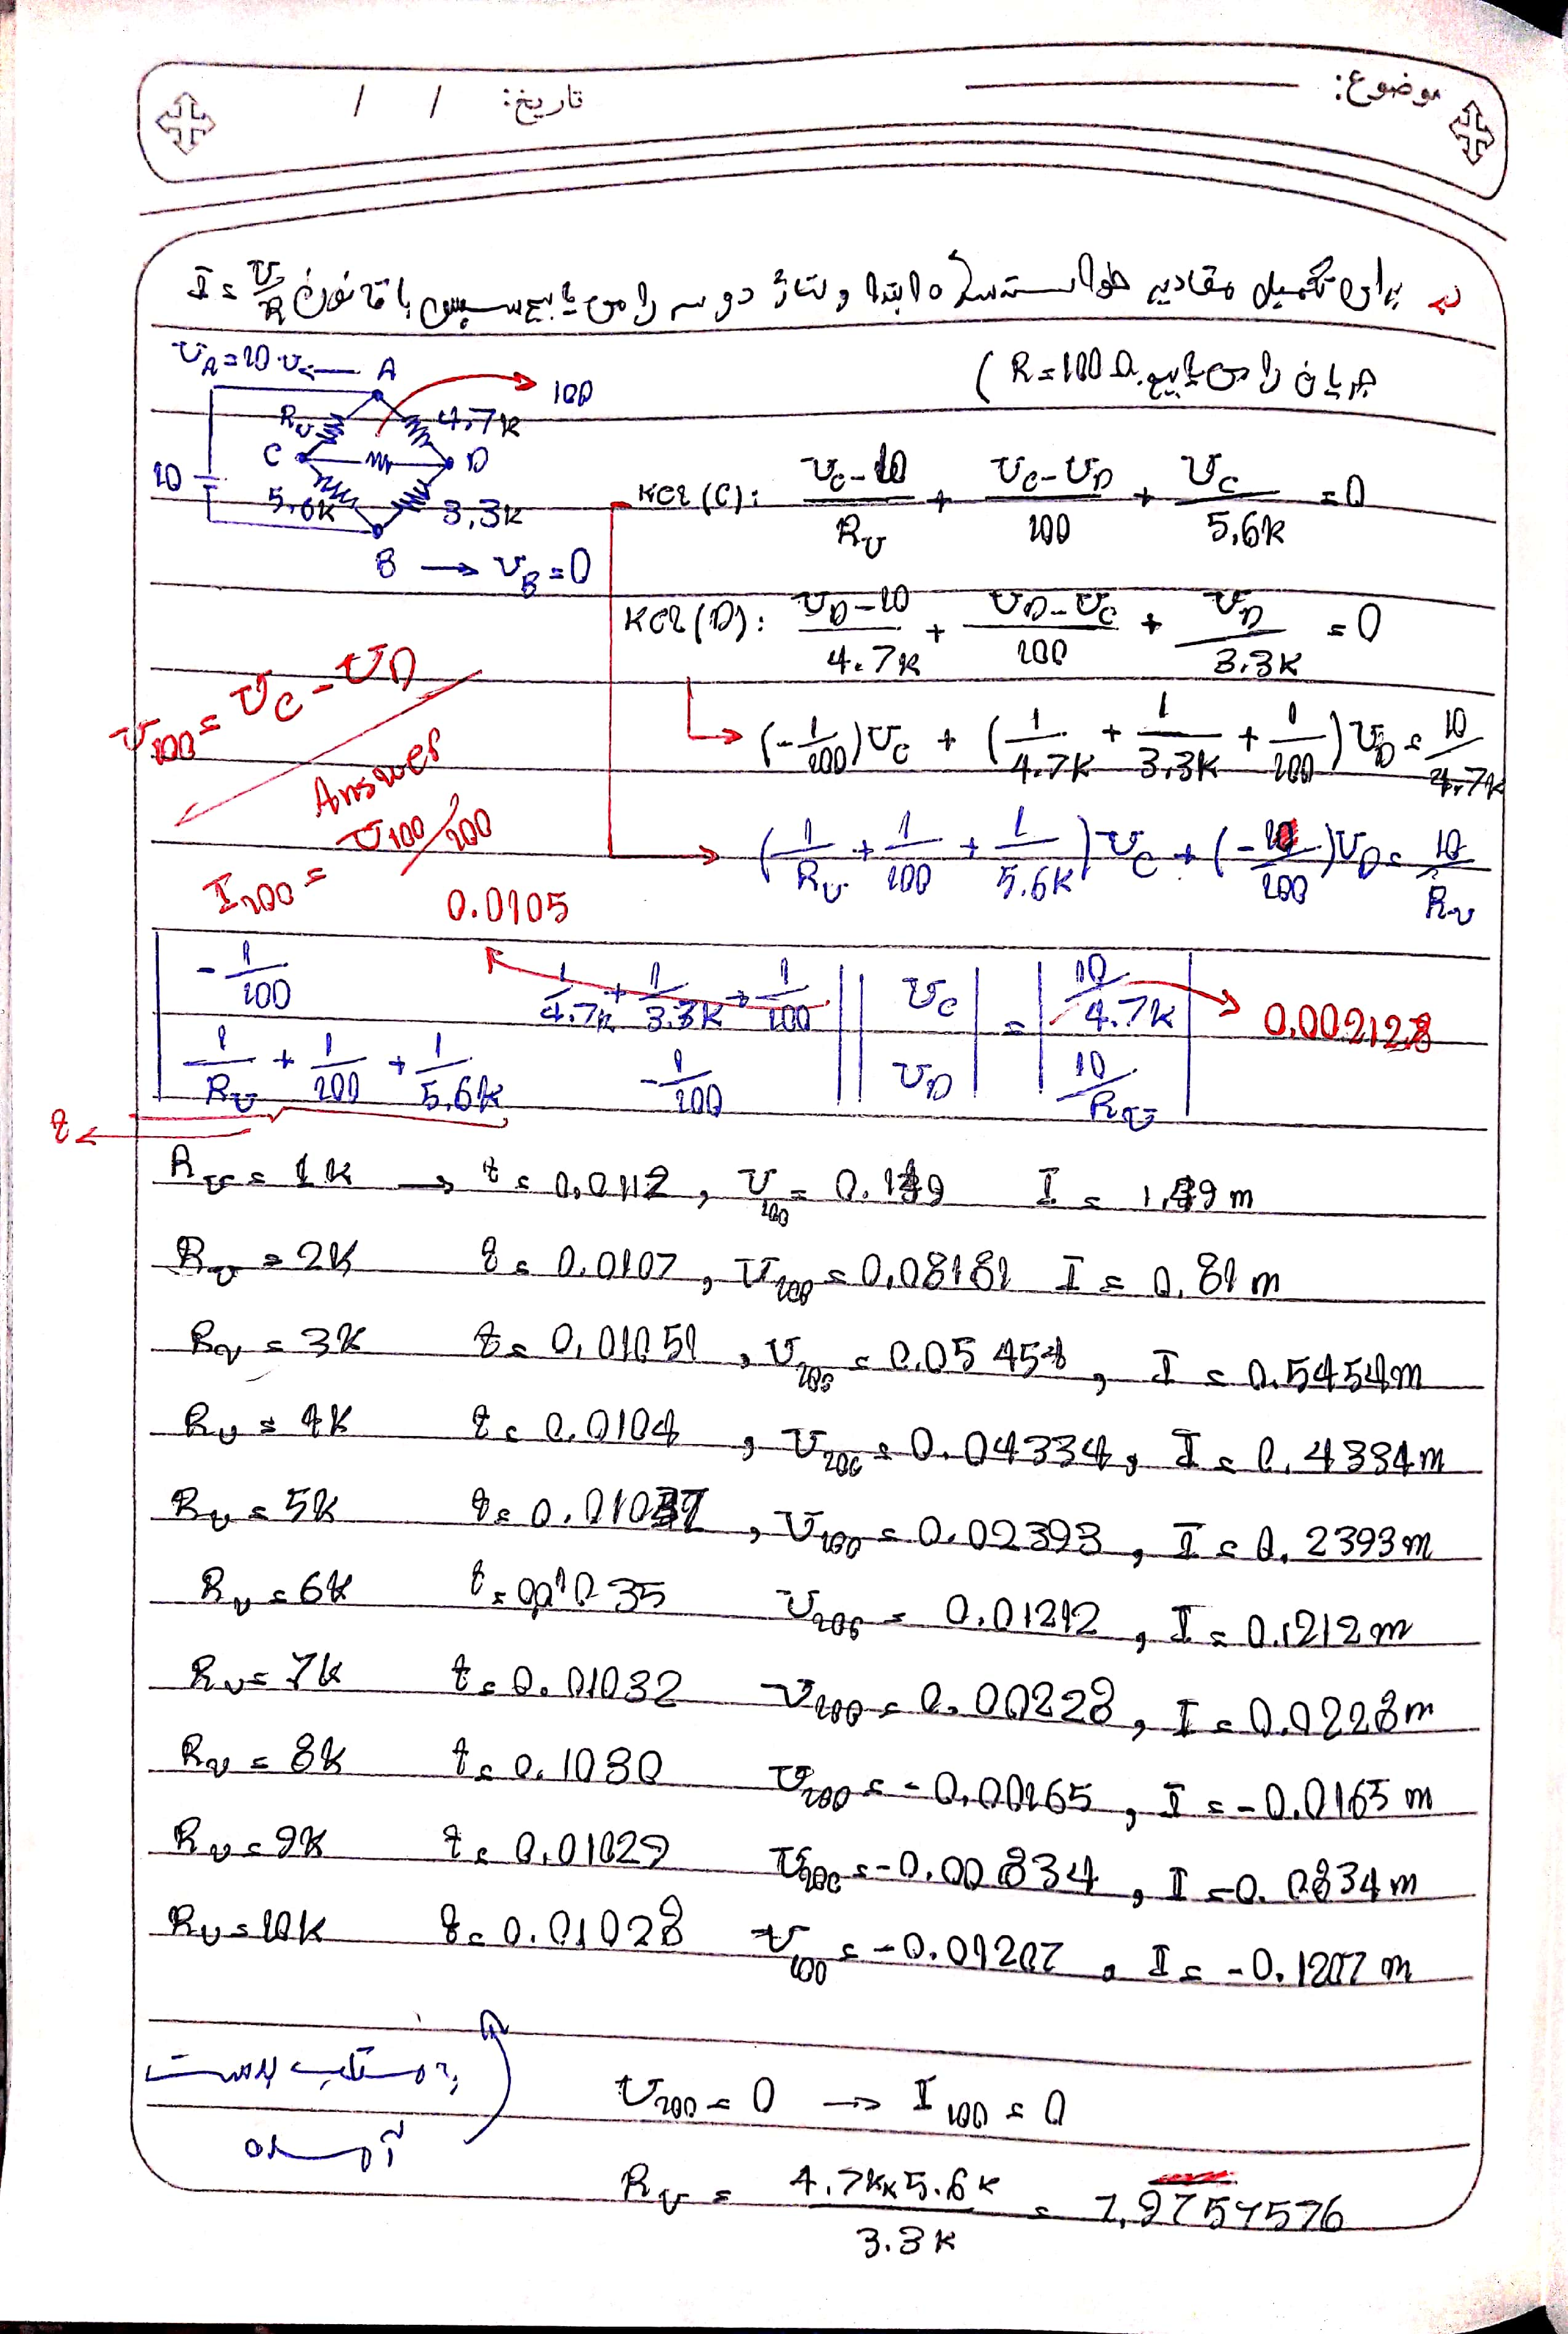 موضوع:
تاریخ: / /
برای تکمیل مقادیر خواسته شده ابتدا ولتاژ دو سر را می یابیم سپس با قانون I = V/R
جریان را می یابیم. (R=100Ω
V_A=10 v ← A
100
R_v 4.7k
C D
10 5.6k 3.3k
B → V_B=0
KCL(C): (V_C-10)/R_v + (V_C-V_D)/100 + V_C/5.6k = 0
KCL(D): (V_D-10)/4.7k + (V_D-V_C)/100 + V_D/3.3k = 0
V_100 = V_C - V_D
Answer
I_100 = V_100/100
→ (-1/100)V_C + (1/4.7k + 1/3.3k + 1/100)V_D = 10/4.7k
→ (1/R_v + 1/100 + 1/5.6k)V_C + (-1/100)V_D = 10/R_v
0.0105
| -1/100 1/4.7k + 1/3.3k + 1/100 | | V_C | = | 10/4.7k | → 0.002128
| 1/R_v + 1/100 + 1/5.6k -1/100 | | V_D | | 10/R_v |
R_v = 1k → = 0.0112, V_100 = I =
R_v = 2k = 0.0107, V_100 = 0.08181 I = 0.81m
R_v = 3k = 0.01051, V_100 = 0.05454, I = 0.5454m
R_v = 4k = 0.0104, V_100 = 0.04334, I = 0.4334m
R_v = 5k = , V_100 = 0.02393, I = 0.2393m
R_v = 6k = 0.01035 V_100 = 0.01212, I = 0.1212m
R_v = 7k = 0.01032 V_100 = 0.00228, I = 0.0228m
R_v = 8k = 0.1030 V_100 = -0.00165, I = -0.0165m
R_v = 9k = 0.01029 V_100 = -0.00834, I = -0.0834m
R_v = 10k = 0.01028 V_100 = -0.01207, I = -0.1207m
بدست
آمده
V_100 = 0 → I_100 = 0
R_v = (4.7k×5.6k)/3.3k = 7,9757576